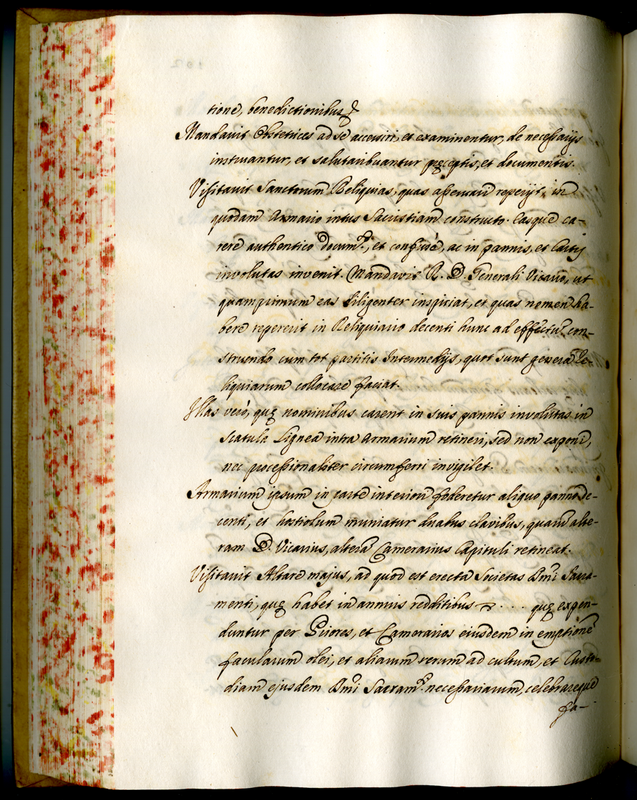 tione, benedictionibus &
Mandavit Obstetrices ad se accersiri, et examinentur, de necessarijs
instruantur, et salutaribus præceptis, et documentis.
Visitavit Sanctarum Reliquias, quas asservari reperijt, in
quodam Armario intus Sacristiam constructo. Easque ca-
rere authentico docum.to, et confusè, ac in pannis, et Cartis
involutas invenit. Mandavit R. D. Generali Vicario, ut
quamprimum eas diligenter inspiciat, et quas nomen ha-
bere repererit in Reliquiario decenti hunc ad effectum con-
struendo cum tot partitis Intermedijs, quot sunt genera Re-
liquiarum collocare faciat.
Illas verò, quę nominibus carent in suis pannis involutas in
Scatula Lignea intra Armarium retineri, sed non exponi,
nec processionaliter circumferri invigilet.
Armarium ipsum in parte interiori foderetur aliquo panno de-
centi, et hostiolum muniatur duabus clavibus, quarum alte-
ram D. Vicarius, alteram Camerarius Capituli retineat.
Visitavit Altare majus, ad quod est erecta Societas Smi Sacra-
menti, quę habet in annuis redditibus ∇ . . . . quę expen-
duntur per Priores, et Camerarios eiusdem in emptione
facularum olei, et aliarum rerum ad cultum, et Custo-
diam ejusdem Smi Sacram.ti necessariarum, celebrareque
fa-